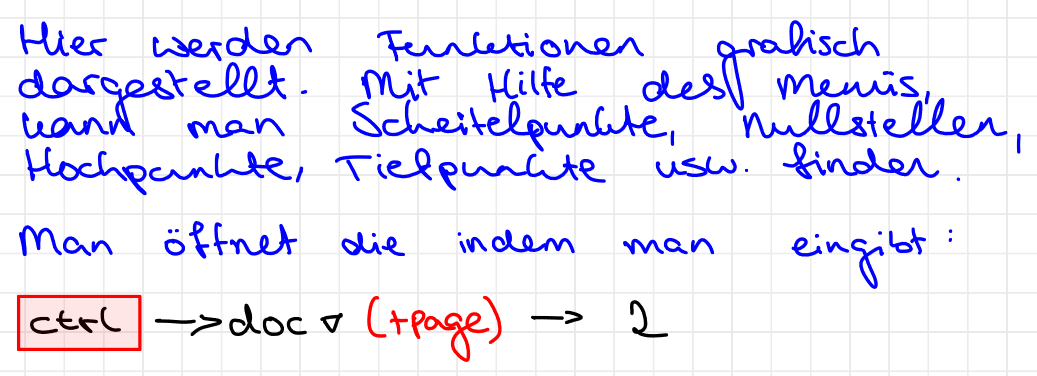 Hier werden Funktionen grafisch
dargestellt. Mit Hilfe des Menüs,
kann man Scheitelpunkte, Nullstellen,
Hochpunkte, Tiefpunkte usw. finden.
Man öffnet die indem man eingibt:
ctrl → doc ▿ (+page) → 2